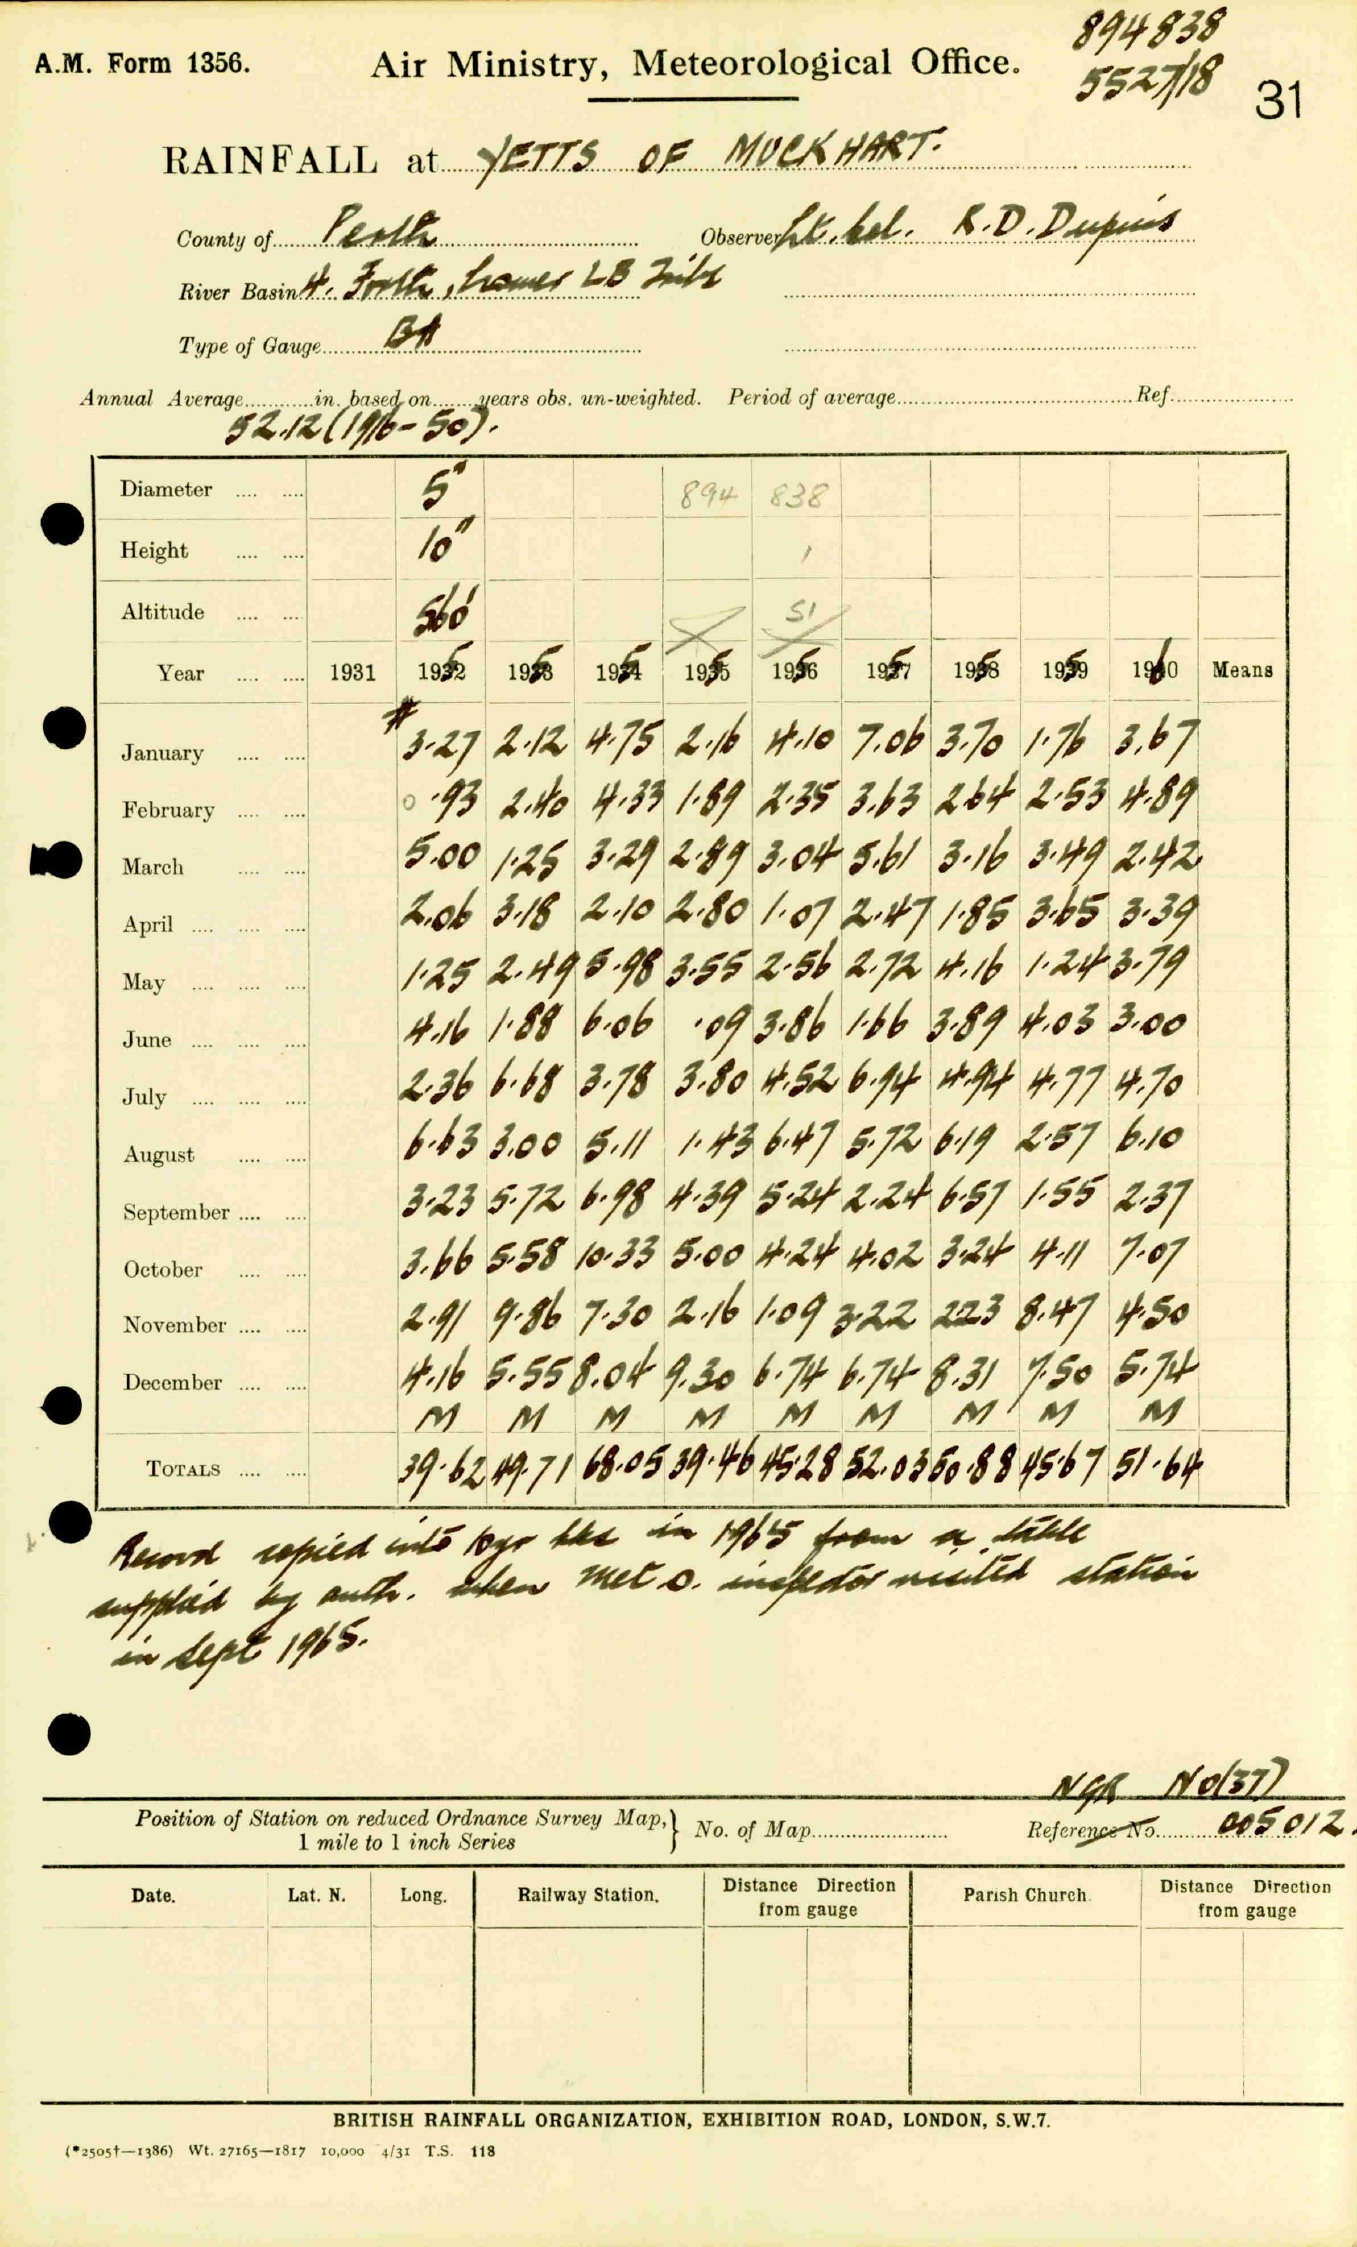 894838
A.M. Form 1356.
Air Ministry, Meteorological Office.
5527/18
31
RAINFALL at YETTS OF MUCKHART.
County of Perth Observer Lt. Col. R.D. Dupuis
River Basin 4. Forth, Lower LB Tribs
Type of Gauge
Annual Average in. based on years obs. un-weighted. Period of average Ref.
52.12 (1916-50).
Diameter 5" 894 838
Height 10" 1
Altitude 560' 51
Year 1931 1952 1953 1954 1955 1956 1957 1958 1959 1960 Means
January 3.27 2.12 4.75 2.16 4.10 7.06 3.70 1.76 3.67
February 0.93 2.40 4.33 1.89 2.35 3.63 2.64 2.53 4.89
March 5.00 1.25 3.29 2.89 3.04 5.61 3.16 3.49 2.42
April 2.06 3.18 2.10 2.80 1.07 2.47 1.85 3.65 3.39
May 1.25 2.49 5.98 3.55 2.56 2.72 4.16 1.24 3.79
June 4.16 1.88 6.06 .09 3.86 1.66 3.89 4.03 3.00
July 2.36 6.68 3.78 3.80 4.52 6.94 4.94 4.77 4.70
August 6.63 3.00 5.11 1.43 6.47 5.72 6.19 2.57 6.10
September 3.23 5.72 6.98 4.39 5.24 2.24 6.57 1.55 2.37
October 3.66 5.58 10.33 5.00 4.24 4.02 3.24 4.11 7.07
November 2.91 9.86 7.30 2.16 1.09 3.22 2.23 8.47 4.50
December 4.16 5.55 8.04 9.30 6.74 6.74 8.31 7.50 5.74
M M M M M M M M M
TOTALS 39.62 49.71 68.05 39.46 45.28 52.03 50.88 45.67 51.64
Record copied into 10yr bks in 1965 from a table
supplied by auth. when Met.O. inspector visited station
in Sept 1965.
NGR NO(37)
Position of Station on reduced Ordnance Survey Map,
1 mile to 1 inch Series
No. of Map
Reference No. 005012.
Date. Lat. N. Long. Railway Station. Distance Direction from gauge Parish Church. Distance Direction from gauge
BRITISH RAINFALL ORGANIZATION, EXHIBITION ROAD, LONDON, S.W.7.
(*2505†—1386) Wt. 27165—1817 10,000 4/31 T.S. 118